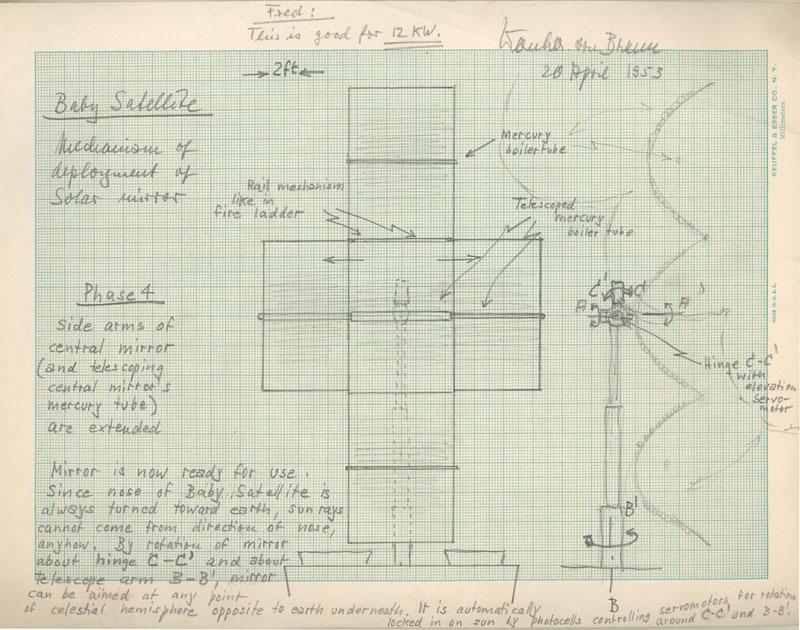 Fred:
This is good for 12 KW.
von Braun
20 April 1953
→ 2ft ←
Baby Satellite
Mechanism of
deployment of
Solar mirror
Mercury
boiler tube
Rail mechanism
like in
fire ladder
Telescoped
mercury
boiler tube
KEUFFEL & ESSER CO., N. Y.
Millimeters
MADE IN U.S.A.
Phase 4
Side arms of
central mirror
(and telescoping
central mirror's
mercury tube)
are extended
C' C
A' A
Hinge C-C'
with
elevation
servo-
motor
Mirror is now ready for use.
Since nose of Baby Satellite is
always turned toward earth, sun rays
cannot come from direction of nose,
anyhow. By rotation of mirror
about hinge C-C' and about
telescope arm B-B', mirror
can be aimed at any point
of celestial hemisphere opposite to earth underneath. It is automatically
locked in on sun by photocells controlling servomotors for rotation
around C-C' and B-B'.
B'
B